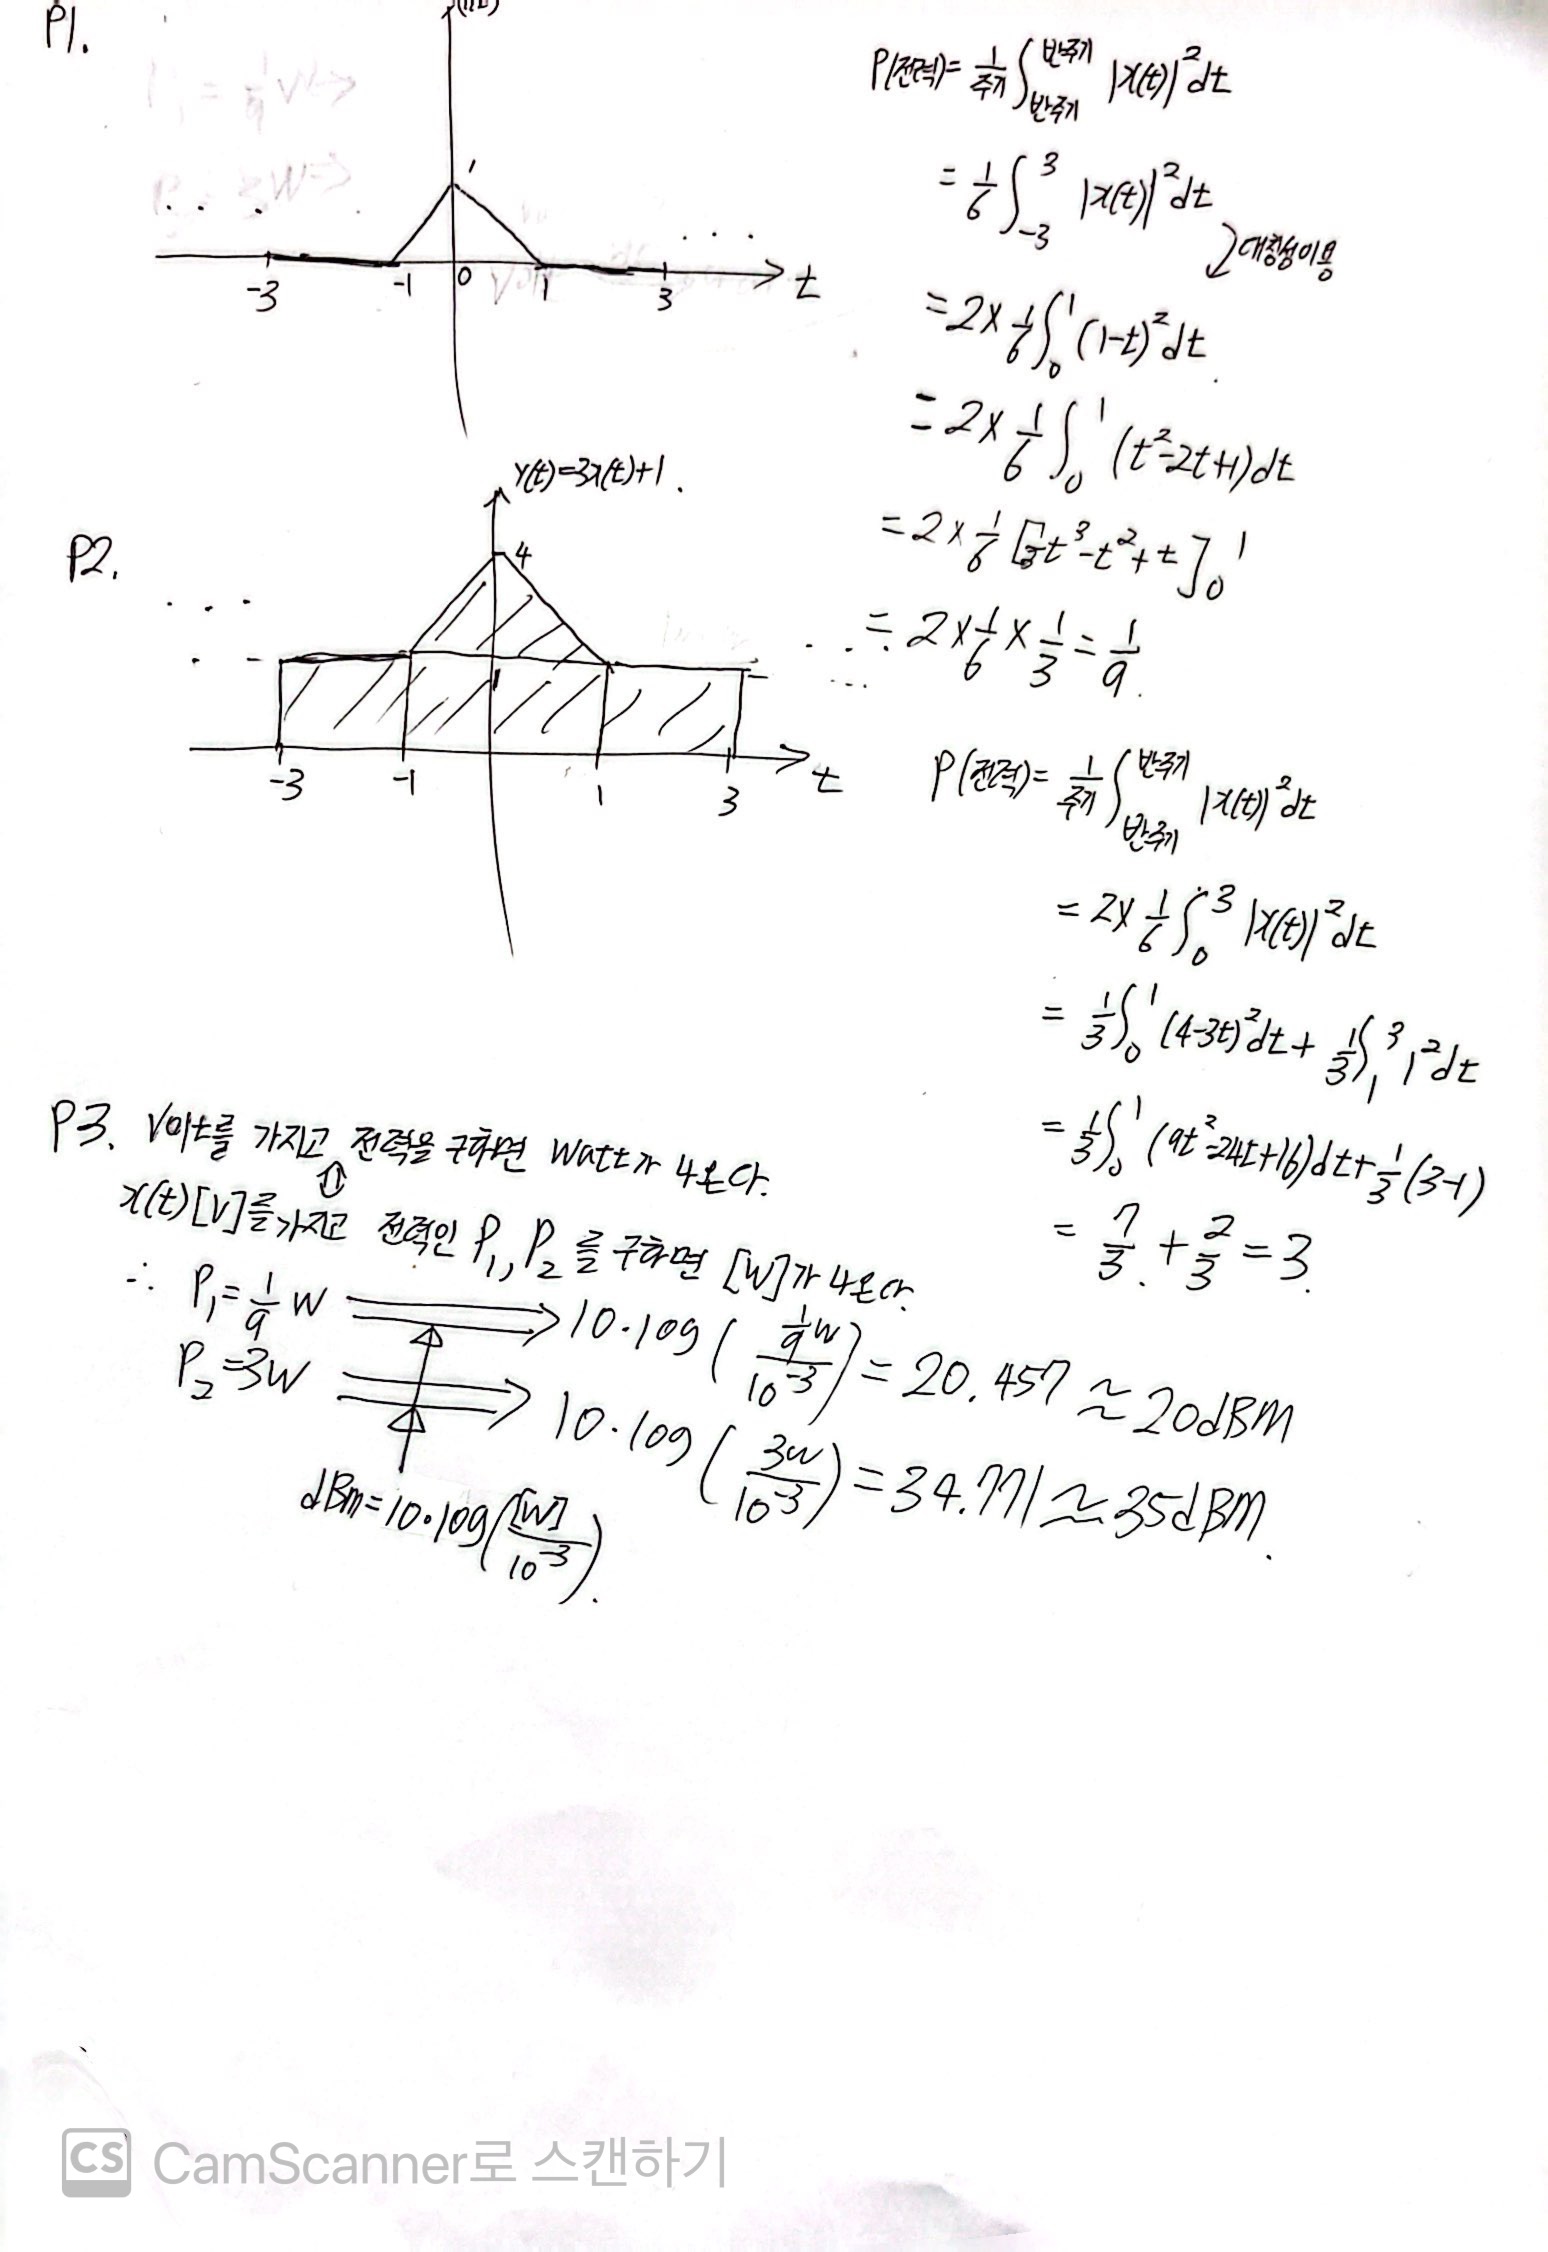 P1.
1
-3 -1 0 1 3 t
P(전력)= 1/주기 ∫_반주기^반주기 |x(t)|²dt
= 1/6 ∫_-3^3 |x(t)|²dt
대칭성이용
= 2× 1/6 ∫_0^1 (1-t)²dt
= 2× 1/6 ∫_0^1 (t²-2t+1)dt
= 2× 1/6 [1/3t³-t²+t]_0^1
= 2×1/6×1/3 = 1/9.
P2.
Y(t)=3x(t)+1.
4
1
-3 -1 1 3 t
P(전력)= 1/주기 ∫_반주기^반주기 |x(t)|²dt
= 2× 1/6 ∫_0^3 |x(t)|²dt
= 1/3 ∫_0^1 (4-3t)²dt + 1/3 ∫_1^3 1²dt
= 1/3 ∫_0^1 (9t²-24t+16)dt + 1/3 (3-1)
= 7/3 + 2/3 = 3.
P3. Volt를 가지고 전력을 구하면 Watt가 나온다.
⇕
x(t)[V]를 가지고 전력인 P₁, P₂ 를 구하면 [W]가 나온다.
∴ P₁= 1/9 W ⟹ 10·log( 1/9W / 10⁻³ ) = 20.457 ≈ 20dBm
P₂=3W ⟹ 10·log( 3W / 10⁻³ ) = 34.771 ≈ 35dBm.
dBm=10·log( [W] / 10⁻³ ).
CS CamScanner로 스캔하기